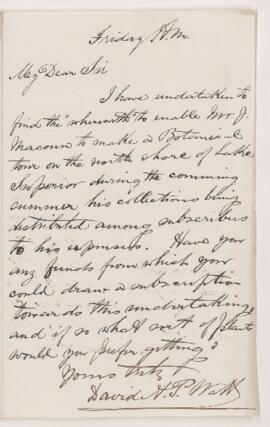 Friday A.M.
My Dear Sir
I have undertaken to
find the "wherewith" to enable Mr J.
Macoun to make a Botanical
tour on the north shore of Lake
Superior during the comming
summer his collections being
distributed among subscribers
to his expenses. Have you
any funds from which you
could draw a subscription
towards this undertaking
and if so what sort of plants
would you prefer getting?
Yours
David A. P. Watt